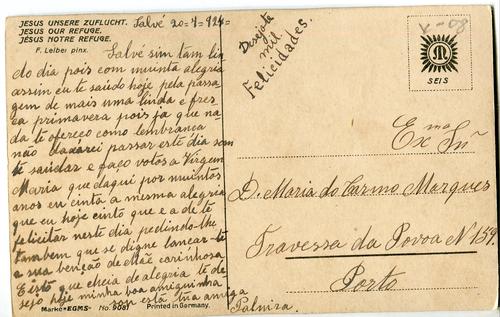 JESUS UNSERE ZUFLUCHT. Salvé 20=7=924=
JESUS OUR REFUGE.
JÉSUS NOTRE REFUGE.
F. Leibel pinx.
Salvé sim tam lin
do dia pois com muinta alegria
assim eu te saúdo hoje pela passa
gem de mais uma linda e fres
ca primavera pois já que na
da te ofereço como lembrança
não deixarei passar este dia sem
te saúdar e faço votos a Virgem
Maria que daqui por muintos
anos eu cinta a mesma alegria
que eu hoje cinto que e a de te
felicitar neste dia pedindo-lhe
tambem que se digne lançar-te
a sua benção de Mãe carinhosa
É isto que cheia de alegria te de
sejo hoje minha boa amiguinha
sou esta tua amiga
Palmira.
Marke EGMS No. 9081 Printed in Germany.
Desejote
mil
Felicidades.
V-08
M
SEIS
Exma Snra
D. Maria do Carmo Marques
Travessa da Povoa Nº 159
Porto